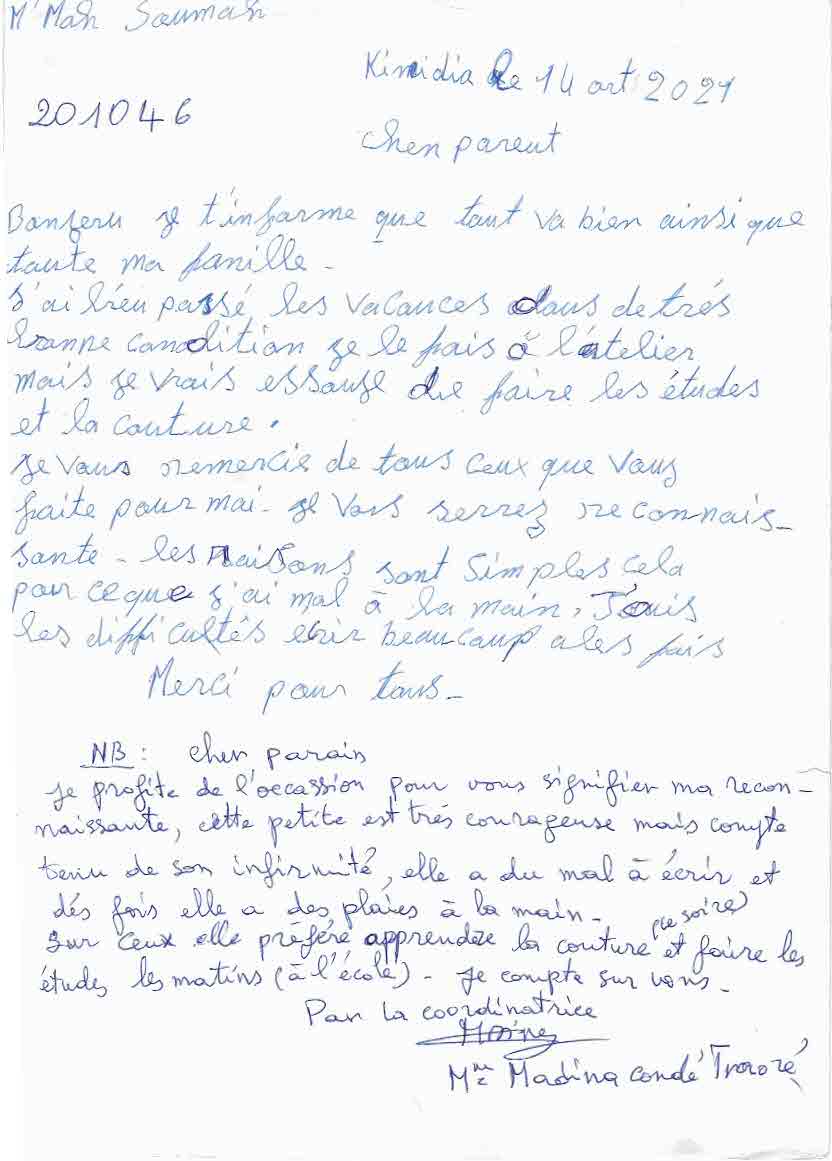 M'Mah Soumah
Kinidia le 14 oct 2021
201046
Cher parent
Bonjeru je t'informe que tout va bien ainsi que
toute ma fanille -
J'ai bien passé les vacances dans de trés
bonne condition je le fais à l'atelier
mais je vrais essauje de faire les études
et la couture.
je vous remercie de tous ceux que vous
faite pour moi - je vors serrez reconnais-
sante - les raisons sont simples cela
pour ce que j'ai mal à la main,
les difficultés beaucoup a les fois
Merci pour tous -
NB : cher parain
Je profite de l'occassion pour vous signifier ma recon-
naissante, cette petite est très courageuse mais compte
tenu de son infirmité, elle a du mal à écrir et
dés fois elle a des plaies à la main -
Sur ceux elle préfére apprendre la couture (le soire) et faire les
études les matins (à l'école) - Je compte sur vous -
Par la coordinatrice
Mme Madina condé Traoré